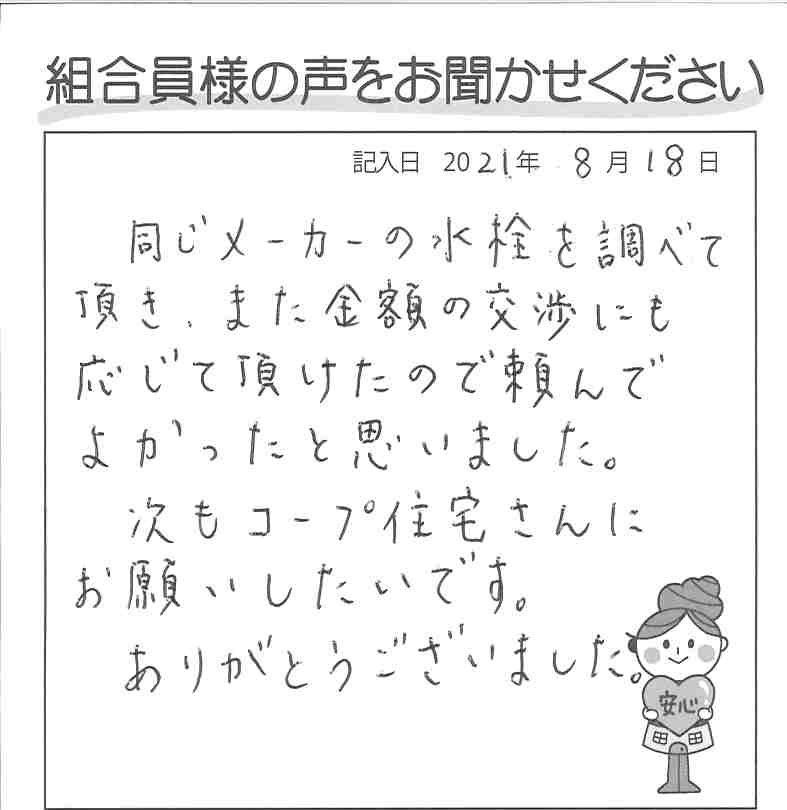 組合員様の声をお聞かせください
記入日 2021年 8月18日
同じメーカーの水栓を調べて
頂き、また金額の交渉にも
応じて頂けたので頼んで
よかったと思いました。
次もコープ住宅さんに
お願いしたいです。
ありがとうございました。
安心